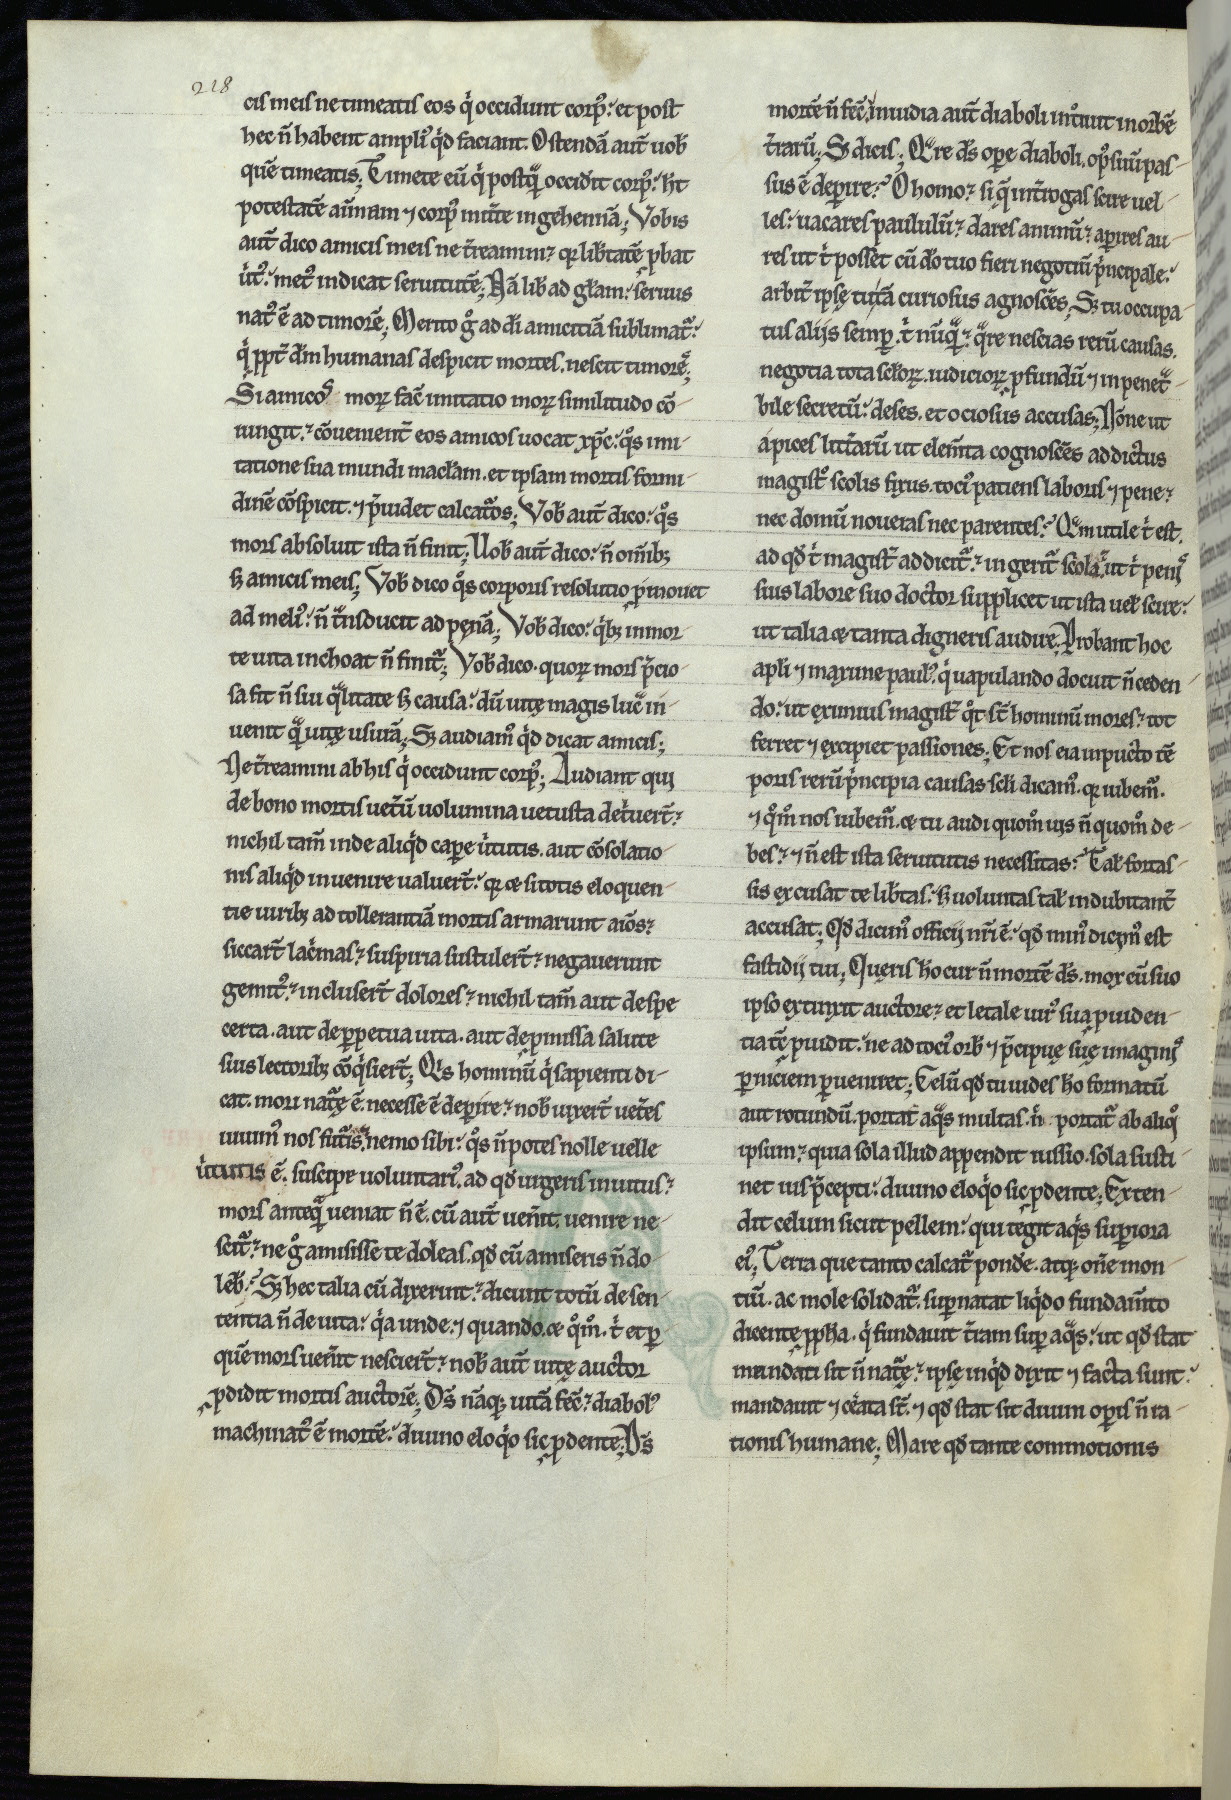 218
cis meis ne timeatis eos q̓ occidunt corp᷒. et post
hec n̄ habent ampli᷒ qͥd faciant. Ostendā aut̄ uob̄
quē timeatis; Timete eū qͥ postqͣ occidit corp᷒. ht̄
potestatē aūmam ⁊ corp᷒ mitte in gehennā; Vobis
aut̄ dico amicis meis ne t̄reamini⁊ qꝛ lib̄tatē ꝓbat
uͥt᷒. met᷒ indicat seruitutē; Nā lib̄ ad gl̄am. seruus
nat᷒ ē ad timorē; Merito gͦ ad dī amicitiā sublimatͬ.
qͥ ꝓpt̄ dm̄ humanas despicit mortes. nescit timorē;
Si amicos moꝝ facͥ imitatio moꝝ similitudo cō
iungit. ⁊ cōuenient̄ eos amicos uocat xp̄c. qͦs imi
tatione sua mundi macl̄am. et ipsam mortis formi
dinē cōspicit. ⁊ p̄uidet calcatͦs; Vob̄ aut̄ dico. qͦs
mors absoluit ista n̄ finit; Uob̄ aut̄ dico. n̄ om̄ibꝫ
sꝫ amicis meis; Vob̄ dico qͦs corporis resolutio ꝓmouet
ad meli᷒. n̄ tͣnsducit ad pęnā; Vob̄ dico. qͥbꝫ in mor
te uita inchoat n̄ finitͬ; Vob̄ dico. quoꝝ mors p̄cio
sa fit n̄ sui qͣlitate sꝫ causa. dū uitę magis lucͣ in
uenit qͣ uitę usurā; Sꝫ audiam᷒ qͥd dicat amicis;
Ne t̄reamini ab his qͥ occidunt corp᷒; Audiant qui
de bono mortis uet̄ū uolumina uetusta det̄uert̄.
nichil tam̄ inde aliqͥd capere uͥtutis. aut cōsolatio
nis aliqͥd inuenire ualuert̄. qꝛ & si totis eloquen
tie uiribꝫ ad tollerantiā mortis armarunt aīos⁊
siccart̄ lacͥmas⁊ suspiria sustulert̄⁊ negauerunt
gemit᷒⁊ inclusert̄ dolores⁊ nichil tam̄ aut de spe
certa. aut de ꝑpetua uita. aut de ꝓmissa salute
suis lectoribꝫ cōqͥsiert̄; Qͥs hominū qͥ sapienti di
cat. mori natͬę ē. necesse ē deꝑire⁊ nob̄ uixert̄ uet̄es
uiuim᷒ nos futͬis. nemo sibi. qͦs n̄ potes nolle uelle
uͥtutis ē. suscipe uoluntari᷒. ad qd̄ urgeris inuitus⁊
mors anteqͣ ueniat n̄ ē. cū aut̄ ueñit. uenire ne
scitͬ⁊ ne gͦ amisisse te doleas. qd̄ cū amiseris n̄ do
leb̄. Sꝫ hec talia cū dixerint⁊ dicunt totū de sen
tentia n̄ de uita. qͥa unde⁊ & quando & qͦm̄. t̄ et ꝑ
quē mors ueñit nesciert̄⁊ nob̄ aut̄ uitę auctor
ꝓdidit mortis auctorē; Ds̄ nāqꝫ uitā fec̄⁊ diabol᷒
machinat᷒ ē mortē. diuino eloqͥo sic ꝓdente; Ds̄
mortē n̄ fec̄; inuidia aut̄ diaboli int͛uit in orbē
t̄rarū; Sꝫ dicis; Qͣre ds̄ ope diaboli. op᷒ suū pas
sus ē deꝑire. O homo⁊ si qͣ int̄rogas scire uel
les. uacares paululū⁊ dares animū⁊ aꝑires au
res ut t̄ posset cū do̅ tuo fieri negotiū pͥncipale.
arbit̄ ipsę tutā curiosus agnoscēs; Sꝫ tu occupa
tus alijs semꝑ. t̄ nūqͣ⁊ qͣre nescias rerū causas.
negotia tota scl̄oꝝ. iudicioꝝ ꝓfundū ⁊ inpenetͣ
bile secretū. deses. et ociosus accusas; Nōne ut
apices litt̄arū ut elem̄ta cognoscēs addictus
magist᷒ scolis fixus. toci᷒ patiens laboris ⁊ penę⁊
nec domū noueras nec parentes. Qͣm utile t̄ est.
ad qd̄ t̄ magist̄ addicitͬ⁊ ingeritͬ scola. ut t̄ penͥ
sius labore suo doctor supplicet ut ista uel̄ scire.
ut talia & tanta digneris audire; Probant hoc
apl̄i ⁊ maxime paul᷒. qͥ uapulando docuit n̄ ceden
do. ut eximius magist̄ qͦt st̄ hominū mores⁊ tot
ferret ⁊ exciperet passiones; Et nos eia in puncto tē
poris rerū pͥncipia causas scl̄i dicam᷒. qꝛ iubemͬ.
⁊ qͦm̄ nos iubemͬ. & tu audi quom̄ uis n̄ quom̄ de
bes⁊ ⁊ n̄ est ista seruitutis necessitas. Tal̄ fortas
sis excusat te lib̄tas. sꝫ uoluntas tal̄ indubitant̄
accusat; Qd̄ dicim᷒ officij nr̄i ē. qd̄ min᷒ dicim᷒ est
fastidij tui; Queris ho̅ cur n̄ mortē ds̄. mox cū suo
ipso extinxit auctore⁊ et letale uir᷒ sua ꝓuiden
tia tē ꝓuidit. ne ad toci᷒ orb̄ ⁊ p̄cipuę suę imaginͥ
ꝑniciem ꝑueniret; Celū qd̄ tu uides ho̅ formatū
aut rotundū. portat aqͣs multas. n̄ portatͬ ab aliqͦ
ipsum⁊ quia sola illud appendit iussio. sola susti
net uis p̄cepti. diuino eloqͥo sic ꝓdente; Exten
dit celum sicut pellem. qui tegit aqͥs suꝑiora
ei᷒; Terra que tanto calcatͬ pondē. atqꝫ om̄e mon
tiū. ac mole solidatͬ. suꝑnatat liqͥdo fundam̄to
dicente ꝓph̄a. qͥ fundauit t̄ram suꝑ aqͣs. ut qd̄ stat
mundati sit n̄ natͬę⁊ ipsę inqͥd dixit ⁊ facta sunt.
mandauit ⁊ c̄eata st̄. ⁊ qd̄ stat sit diuini oꝑis n̄ ra
tionis humane; Mare qd̄ tante commotionis